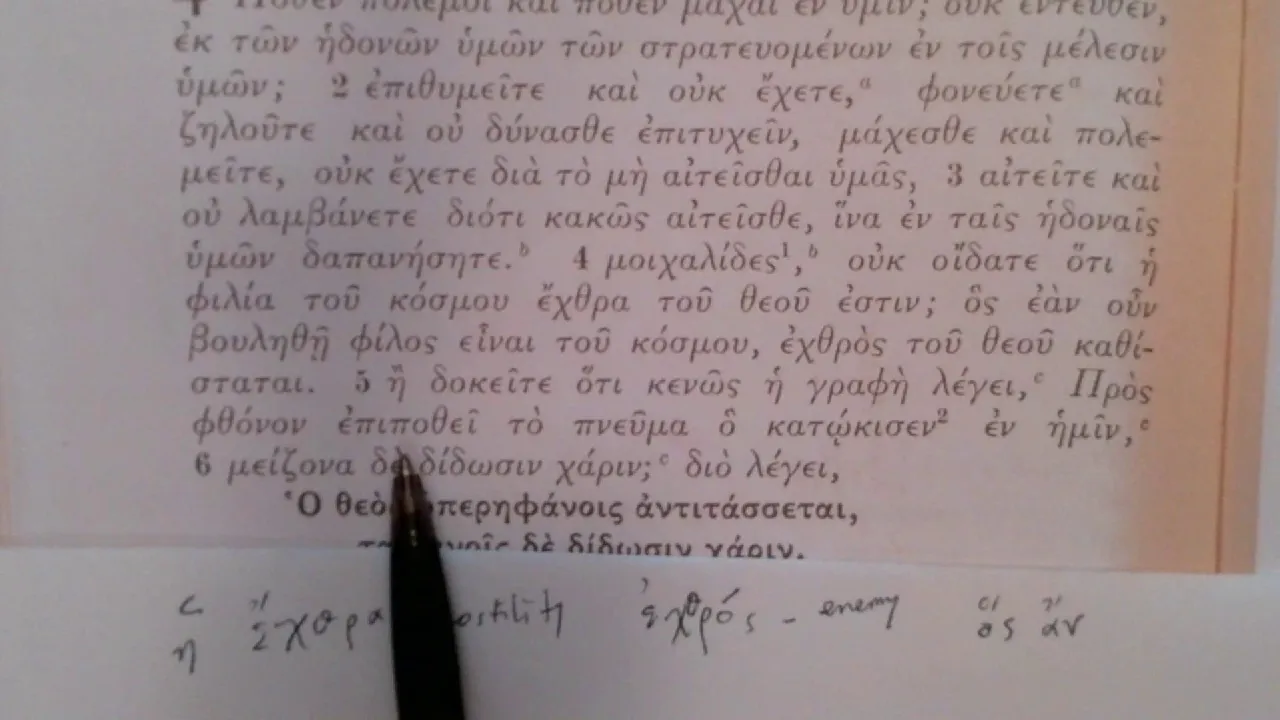 4 Πόθεν πόλεμοι καὶ πόθεν μάχαι ἐν ὑμῖν; οὐκ ἐντεῦθεν,
ἐκ τῶν ἡδονῶν ὑμῶν τῶν στρατευομένων ἐν τοῖς μέλεσιν
ὑμῶν; 2 ἐπιθυμεῖτε καὶ οὐκ ἔχετε,ᵃ φονεύετεᵃ καὶ
ζηλοῦτε καὶ οὐ δύνασθε ἐπιτυχεῖν, μάχεσθε καὶ πολε-
μεῖτε, οὐκ ἔχετε διὰ τὸ μὴ αἰτεῖσθαι ὑμᾶς, 3 αἰτεῖτε καὶ
οὐ λαμβάνετε διότι κακῶς αἰτεῖσθε, ἵνα ἐν ταῖς ἡδοναῖς
ὑμῶν δαπανήσητε.ᵇ 4 μοιχαλίδες¹,ᵇ οὐκ οἴδατε ὅτι ἡ
φιλία τοῦ κόσμου ἔχθρα τοῦ θεοῦ ἐστιν; ὃς ἐὰν οὖν
βουληθῇ φίλος εἶναι τοῦ κόσμου, ἐχθρὸς τοῦ θεοῦ καθί-
σταται. 5 ἢ δοκεῖτε ὅτι κενῶς ἡ γραφὴ λέγει,ᶜ Πρὸς
φθόνον ἐπιποθεῖ τὸ πνεῦμα ὃ κατῴκισεν² ἐν ἡμῖν,ᶜ
6 μείζονα δὲ δίδωσιν χάριν;ᶜ διὸ λέγει,
Ὁ θεὸ περηφάνοις ἀντιτάσσεται,
δὲ δίδωσιν χάριν.
ἡ ἔχθρα ostility ἐχθρός - enemy ὅς ἄν